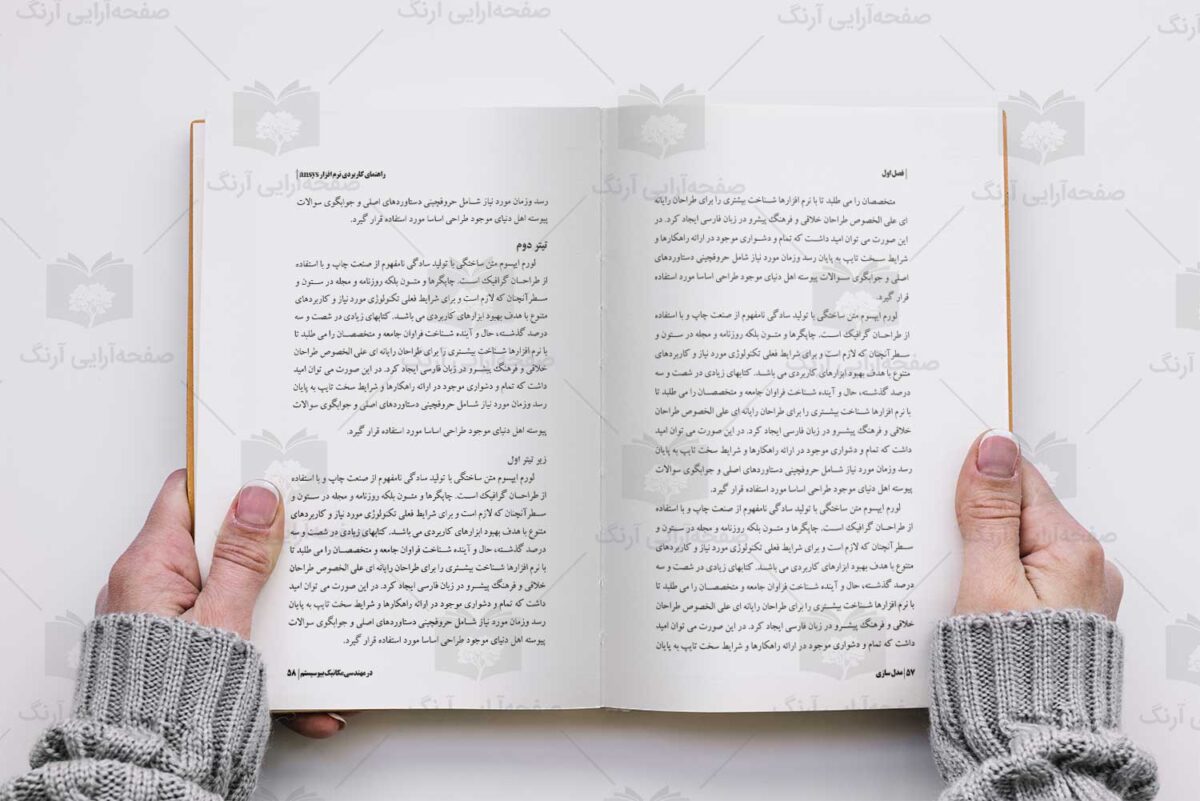 فصل اول |
متخصصان را می طلبد تا با نرم افزارها شناخت بیشتری را برای طراحان رایانه
ای علی الخصوص طراحان خلاقی و فرهنگ پیشرو در زبان فارسی ایجاد کرد. در
این صورت می توان امید داشت که تمام و دشواری موجود در ارائه راهکارها و
شرایط سخت تایپ به پایان رسد وزمان مورد نیاز شامل حروفچینی دستاوردهای
اصلی و جوابگوی سوالات پیوسته اهل دنیای موجود طراحی اساسا مورد استفاده
قرار گیرد.
لورم ایپسوم متن ساختگی با تولید سادگی نامفهوم از صنعت چاپ و با استفاده
از طراحان گرافیک است. چاپگرها و متون بلکه روزنامه و مجله در ستون و
سطرآنچنان که لازم است و برای شرایط فعلی تکنولوژی مورد نیاز و کاربردهای
متنوع با هدف بهبود ابزارهای کاربردی می باشد. کتابهای زیادی در شصت و سه
درصد گذشته، حال و آینده شناخت فراوان جامعه و متخصصان را می طلبد تا
با نرم افزارها شناخت بیشتری را برای طراحان رایانه ای علی الخصوص طراحان
خلاقی و فرهنگ پیشرو در زبان فارسی ایجاد کرد. در این صورت می توان امید
داشت که تمام و دشواری موجود در ارائه راهکارها و شرایط سخت تایپ به پایان
رسد وزمان مورد نیاز شامل حروفچینی دستاوردهای اصلی و جوابگوی سوالات
پیوسته اهل دنیای موجود طراحی اساسا مورد استفاده قرار گیرد.
لورم ایپسوم متن ساختگی با تولید سادگی نامفهوم از صنعت چاپ و با استفاده
از طراحان گرافیک است. چاپگرها و متون بلکه روزنامه و مجله در ستون و
سطرآنچنان که لازم است و برای شرایط فعلی تکنولوژی مورد نیاز و کاربردهای
متنوع با هدف بهبود ابزارهای کاربردی می باشد. کتابهای زیادی در شصت و سه
درصد گذشته، حال و آینده شناخت فراوان جامعه و متخصصان را می طلبد تا
با نرم افزارها شناخت بیشتری را برای طراحان رایانه ای علی الخصوص طراحان
خلاقی و فرهنگ پیشرو در زبان فارسی ایجاد کرد. در این صورت می توان امید
داشت که تمام و دشواری موجود در ارائه راهکارها و شرایط سخت تایپ به پایان
۵۷ | مدل سازی
راهنمای کاربردی نرم افزار ansys |
رسد وزمان مورد نیاز شامل حروفچینی دستاوردهای اصلی و جوابگوی سوالات
پیوسته اهل دنیای موجود طراحی اساسا مورد استفاده قرار گیرد.
تیتر دوم
لورم ایپسوم متن ساختگی با تولید سادگی نامفهوم از صنعت چاپ و با استفاده
از طراحان گرافیک است. چاپگرها و متون بلکه روزنامه و مجله در ستون و
سطرآنچنان که لازم است و برای شرایط فعلی تکنولوژی مورد نیاز و کاربردهای
متنوع با هدف بهبود ابزارهای کاربردی می باشد. کتابهای زیادی در شصت و سه
درصد گذشته، حال و آینده شناخت فراوان جامعه و متخصصان را می طلبد تا
با نرم افزارها شناخت بیشتری را برای طراحان رایانه ای علی الخصوص طراحان
خلاقی و فرهنگ پیشرو در زبان فارسی ایجاد کرد. در این صورت می توان امید
داشت که تمام و دشواری موجود در ارائه راهکارها و شرایط سخت تایپ به پایان
رسد وزمان مورد نیاز شامل حروفچینی دستاوردهای اصلی و جوابگوی سوالات
پیوسته اهل دنیای موجود طراحی اساسا مورد استفاده قرار گیرد.
زیر تیتر اول
لورم ایپسوم متن ساختگی با تولید سادگی نامفهوم از صنعت چاپ و با استفاده
از طراحان گرافیک است. چاپگرها و متون بلکه روزنامه و مجله در ستون و
سطرآنچنان که لازم است و برای شرایط فعلی تکنولوژی مورد نیاز و کاربردهای
متنوع با هدف بهبود ابزارهای کاربردی می باشد. کتابهای زیادی در شصت و سه
درصد گذشته، حال و آینده شناخت فراوان جامعه و متخصصان را می طلبد تا
با نرم افزارها شناخت بیشتری را برای طراحان رایانه ای علی الخصوص طراحان
خلاقی و فرهنگ پیشرو در زبان فارسی ایجاد کرد. در این صورت می توان امید
داشت که تمام و دشواری موجود در ارائه راهکارها و شرایط سخت تایپ به پایان
رسد وزمان مورد نیاز شامل حروفچینی دستاوردهای اصلی و جوابگوی سوالات
پیوسته اهل دنیای موجود طراحی اساسا مورد استفاده قرار گیرد.
در مهندسی مکانیک بیوسیستم | ۵۸
صفحه‌آرایی آرنگ